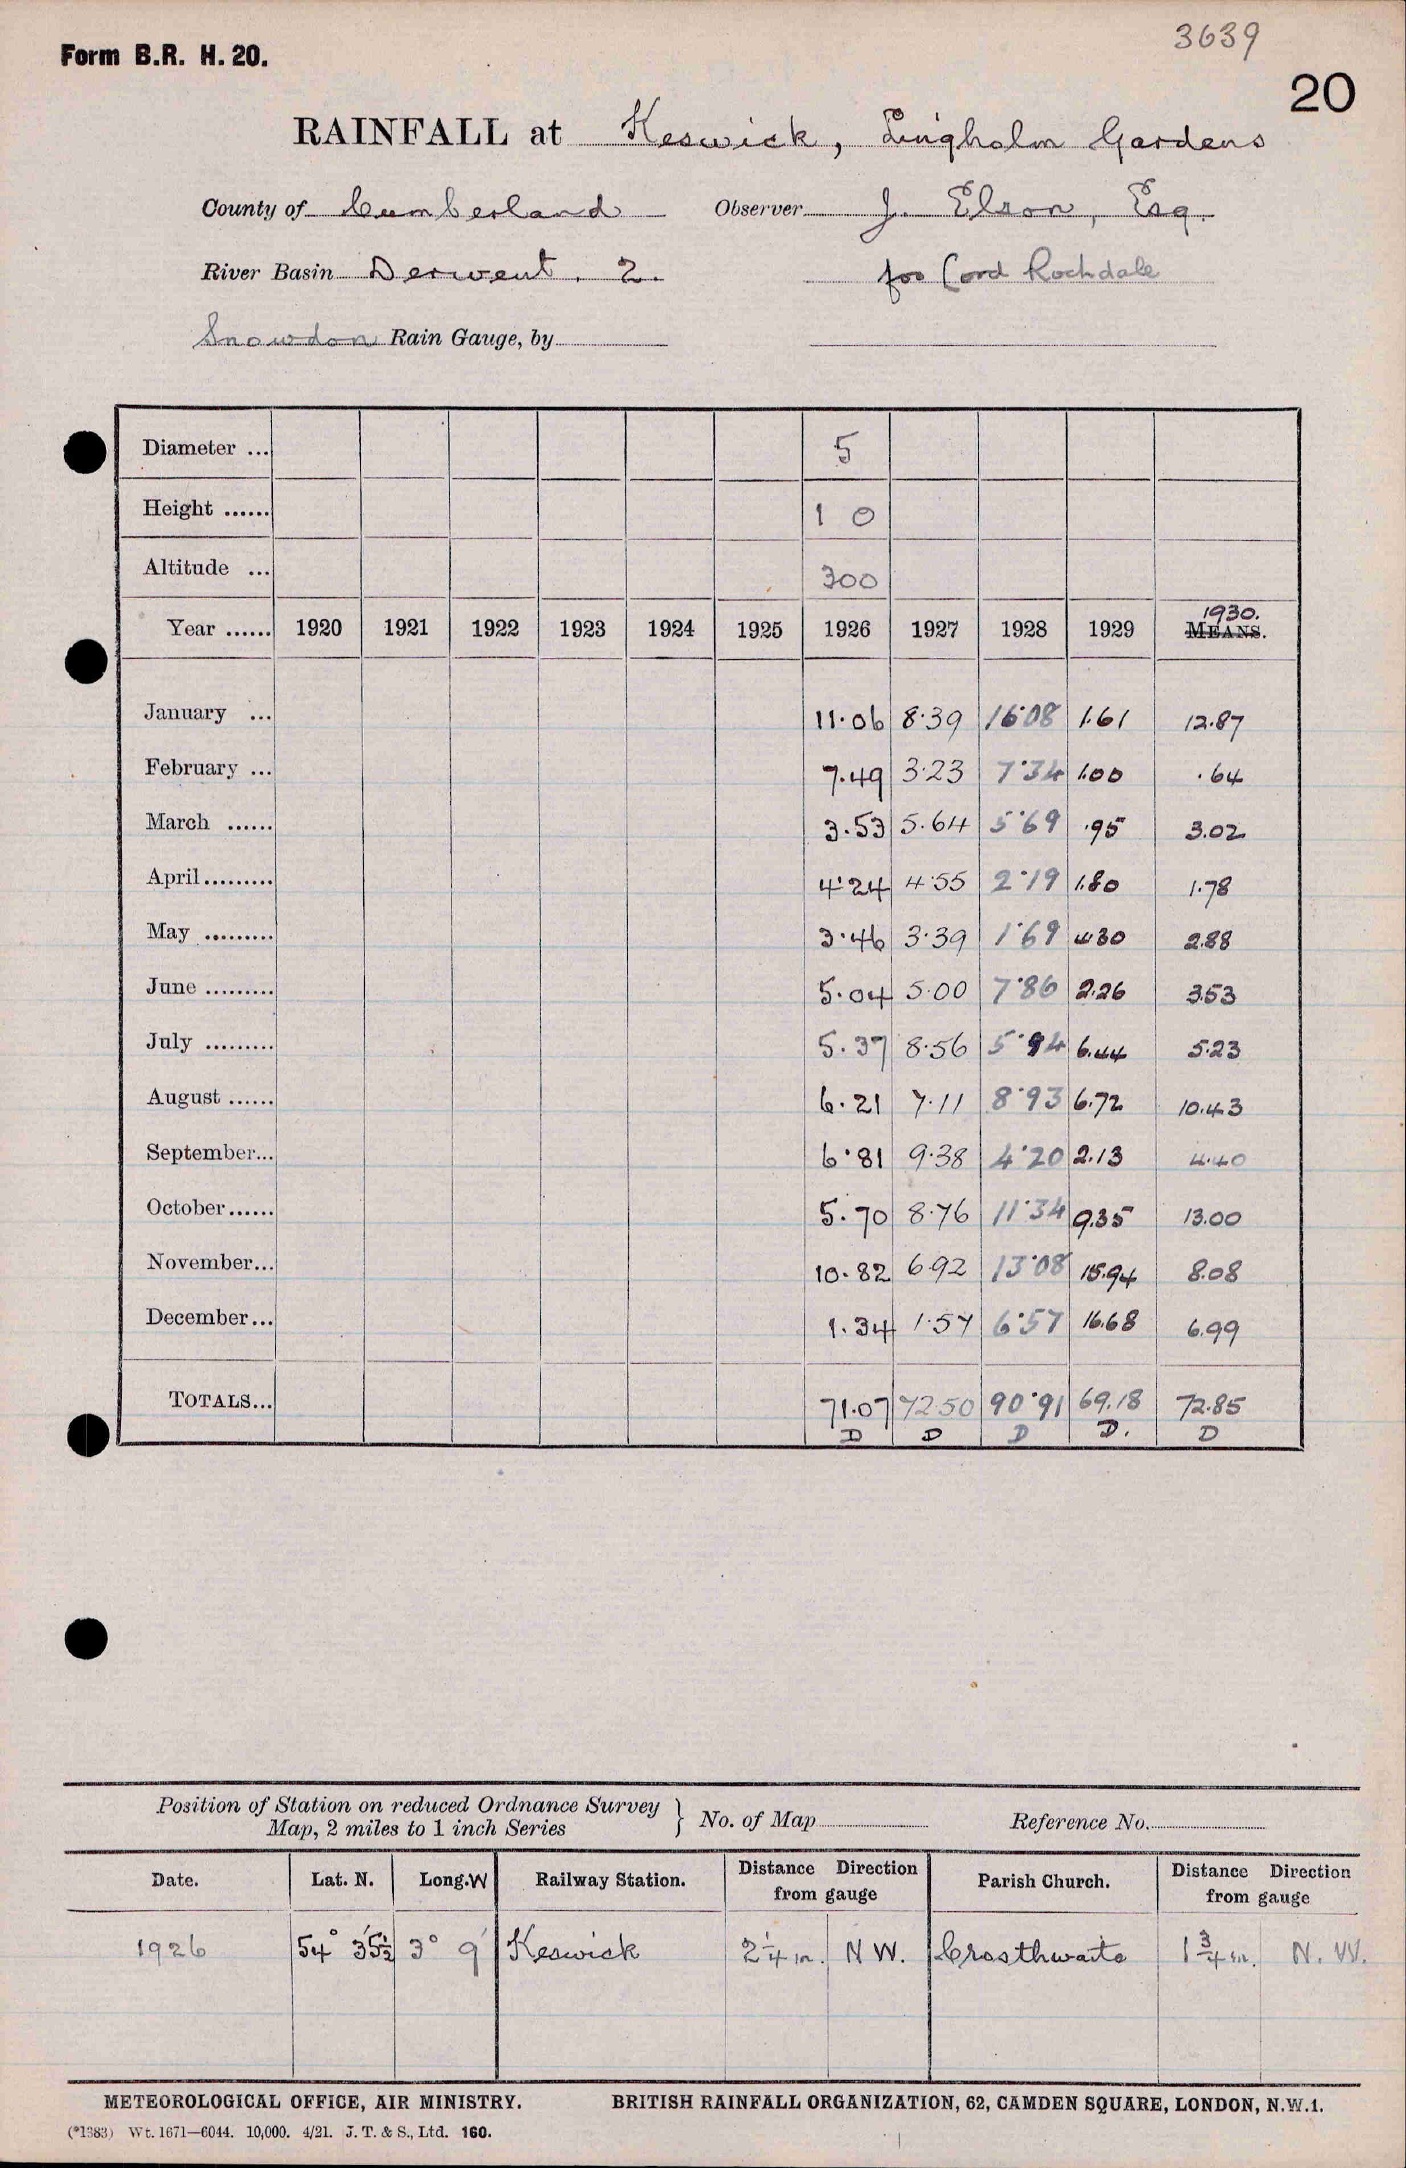 3639
Form B.R. H. 20.
20
RAINFALL at Keswick, Lingholm Gardens
County of Cumberland Observer J. Elson, Esq.
River Basin Derwent. 2. for Lord Rochdale
Snowdon Rain Gauge, by
Diameter ... 5
Height ...... 1 0
Altitude ... 300
1930.
Year ...... 1920 1921 1922 1923 1924 1925 1926 1927 1928 1929 MEANS.
January ... 11.06 8.39 16.08 1.61 12.87
February ... 7.49 3.23 7.34 1.00 .64
March ...... 3.53 5.64 5.69 .95 3.02
April ......... 4.24 4.55 2.19 1.80 1.78
May ......... 3.46 3.39 1.69 4.30 2.88
June ......... 5.04 5.00 7.86 2.26 3.53
July ......... 5.37 8.56 5.94 6.44 5.23
August ...... 6.21 7.11 8.93 6.72 10.43
September... 6.81 9.38 4.20 2.13 4.40
October...... 5.70 8.76 11.34 9.35 13.00
November... 10.82 6.92 13.08 15.94 8.08
December... 1.34 1.57 6.57 16.68 6.99
TOTALS... 71.07 72.50 90.91 69.18 72.85
D D D D. D
Position of Station on reduced Ordnance Survey
Map, 2 miles to 1 inch Series } No. of Map Reference No.
Date. Lat. N. Long. W Railway Station. Distance Direction from gauge Parish Church. Distance Direction from gauge
1926 54° 35½' 3° 9' Keswick 2¼ m. N W. Crosthwaite 1¾ m. N. W.
METEOROLOGICAL OFFICE, AIR MINISTRY. BRITISH RAINFALL ORGANIZATION, 62, CAMDEN SQUARE, LONDON, N.W.1.
(*1383) Wt. 1671—6044. 10,000. 4/21. J. T. & S., Ltd. 160.